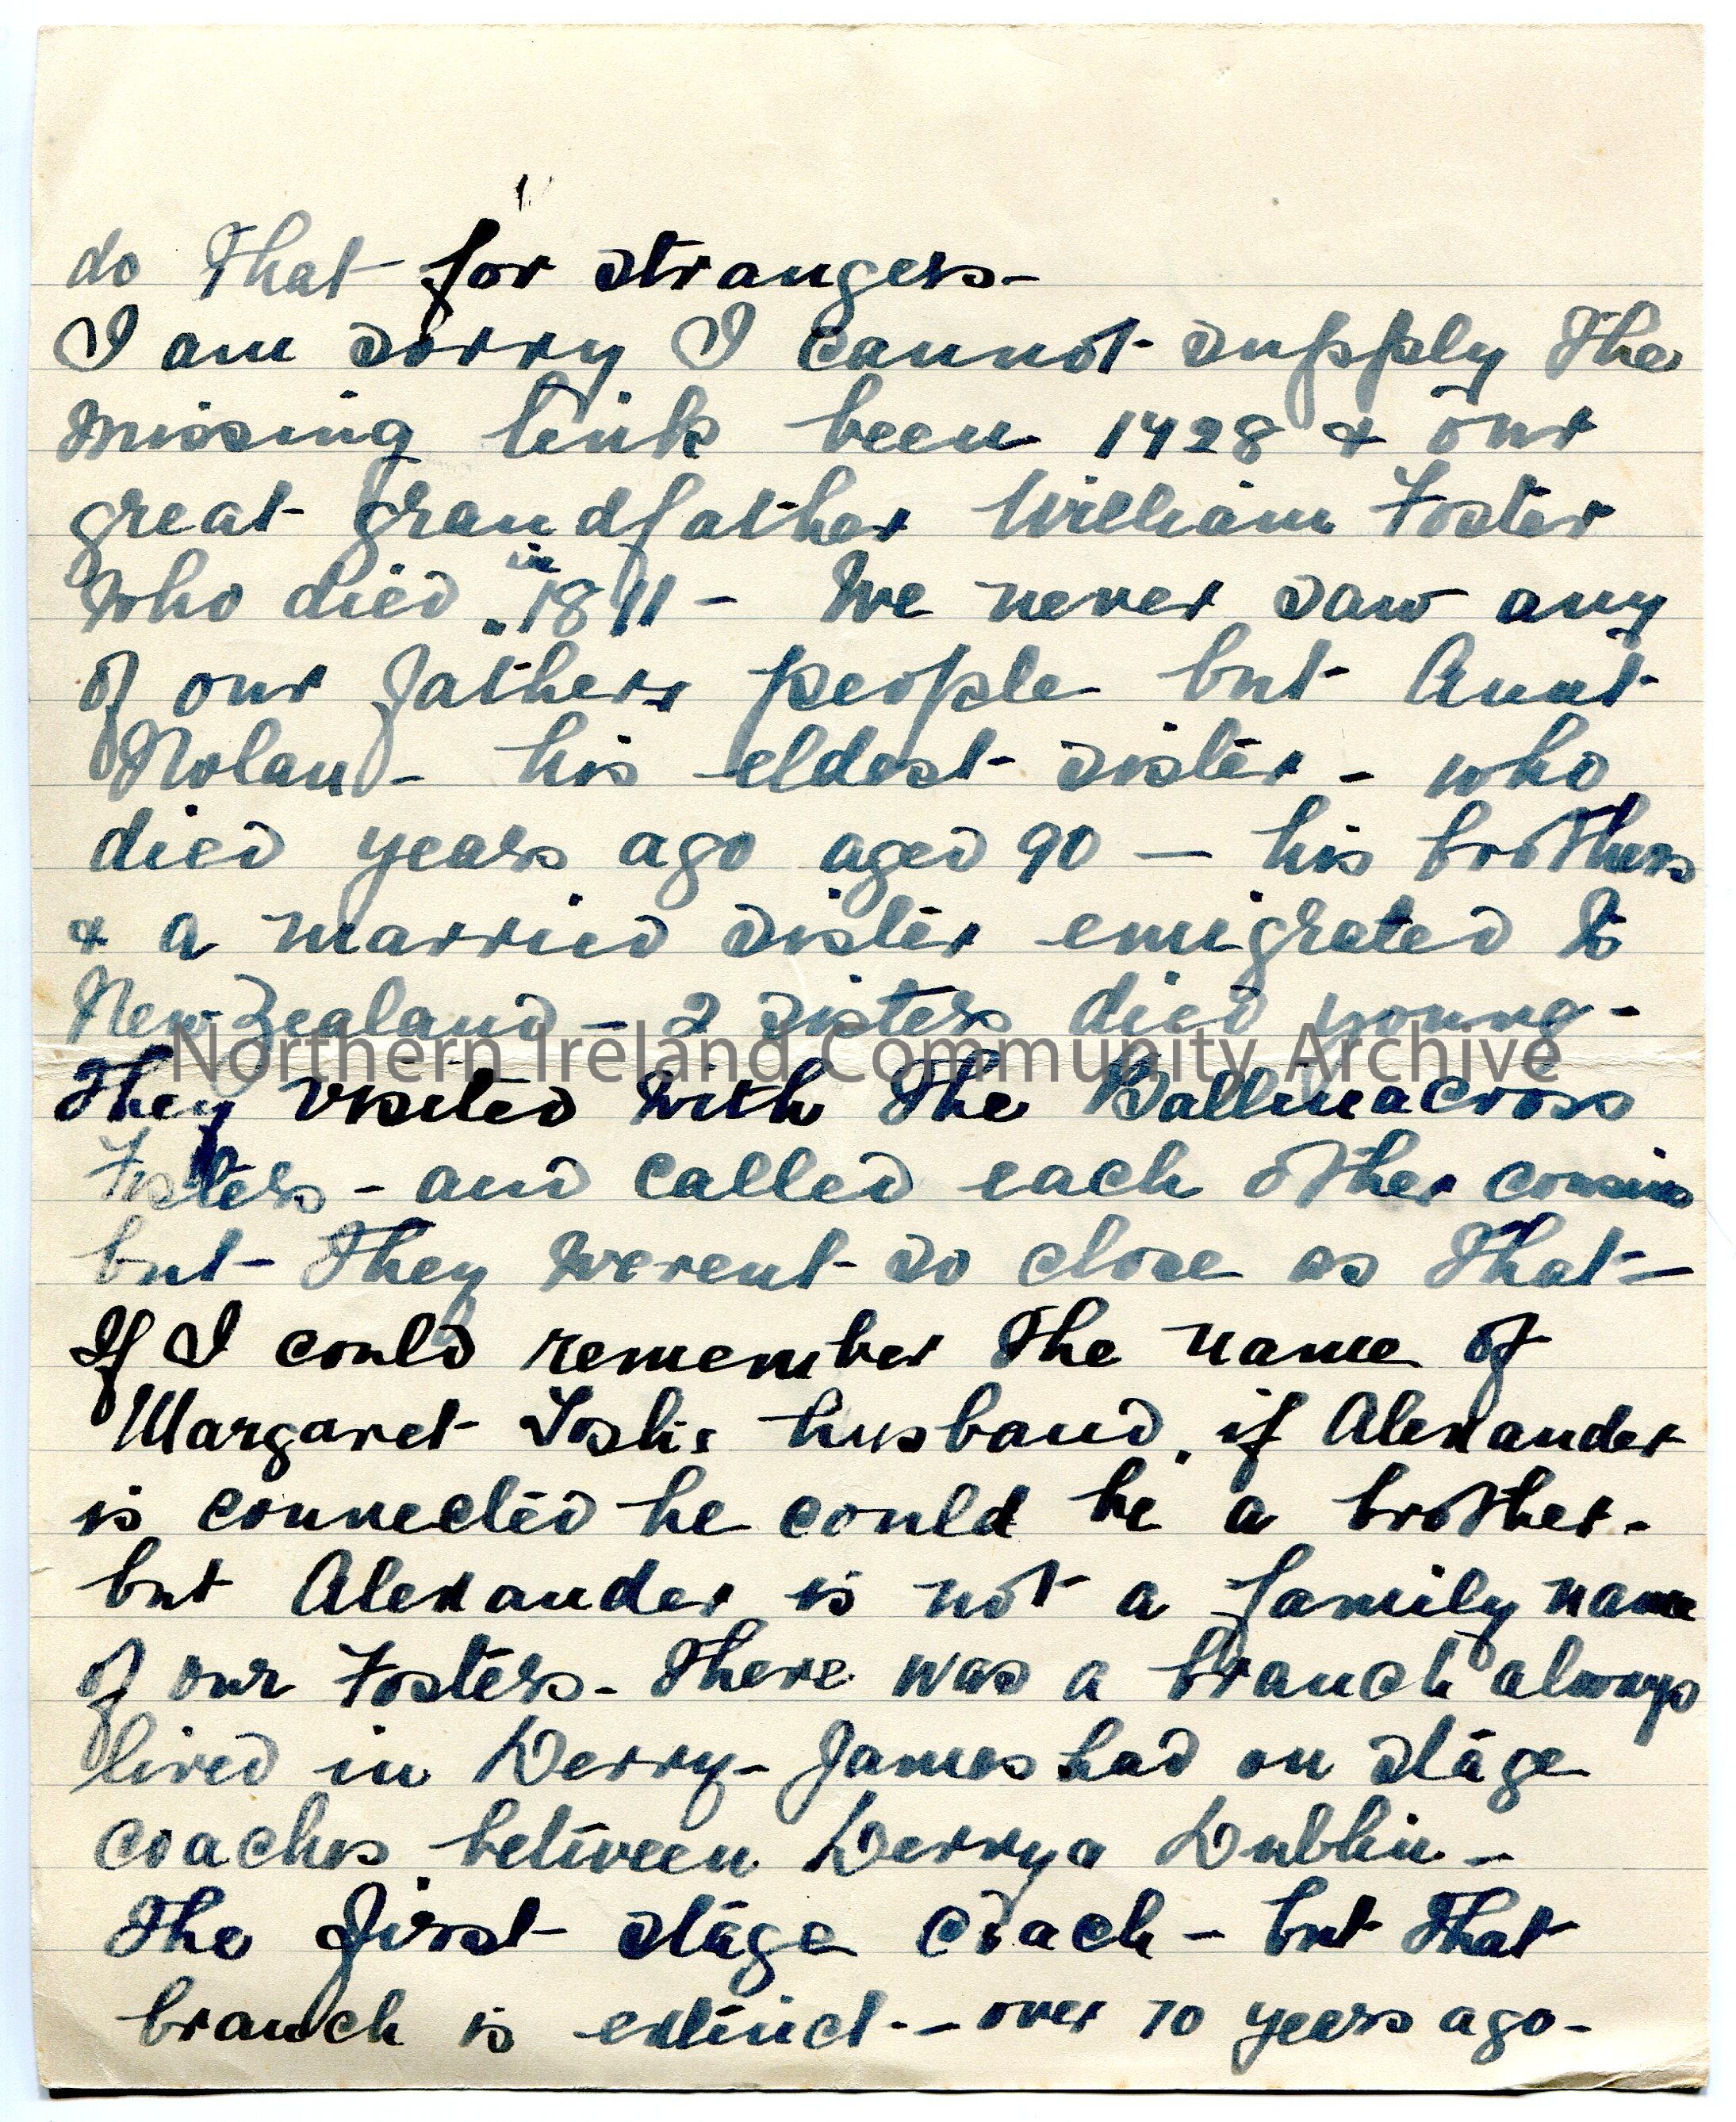 do That for strangers-
I am sorry I cannot supply The
missing link been 1728 & our
great grandfather William Foster
who died in 1811 - We never saw any
of our fathers people but Aunt
Nolan - his eldest sister - who
died years ago aged 90 - his brothers
& a married sister emigrated to
New Zealand - 2 sisters died young -
Northern Ireland Community Archive
They visited with The Ballinacross
Fosters - and called each other cousins
but They werent so close as That -
If I could remember The name of
Margaret husband, if Alexander
is connected he could be a brother -
but Alexander is not a family name
of our Fosters - There was a branch always
lived in Derry - James had on stage
coaches between Derry & Dublin -
The first stage coach - but That
branch is extinct - - over 70 years ago -